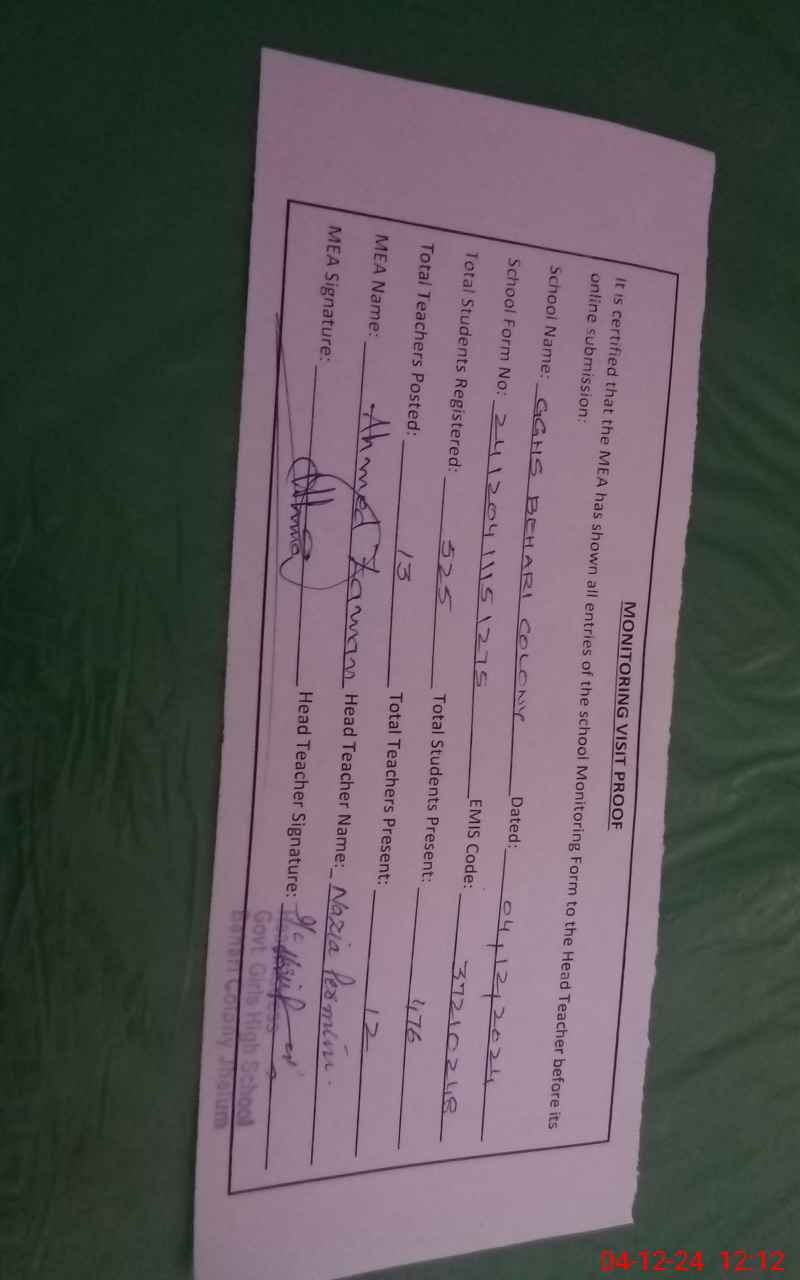 MONITORING VISIT PROOF
It is certified that the MEA has shown all entries of the school Monitoring Form to the Head Teacher before its
online submission:
School Name: GGHS BEHARI COLONY Dated: 04,12,2024
School Form No: 24120411151275 EMIS Code: 37210248
Total Students Registered: 525 Total Students Present: 476
Total Teachers Posted: 13 Total Teachers Present: 12
MEA Name: Ahmed Zaman Head Teacher Name: Nazia Permin.
MEA Signature: Head Teacher Signature:
Govt. Girls High School
Behari Colony Jhelum
04-12-24 12:12